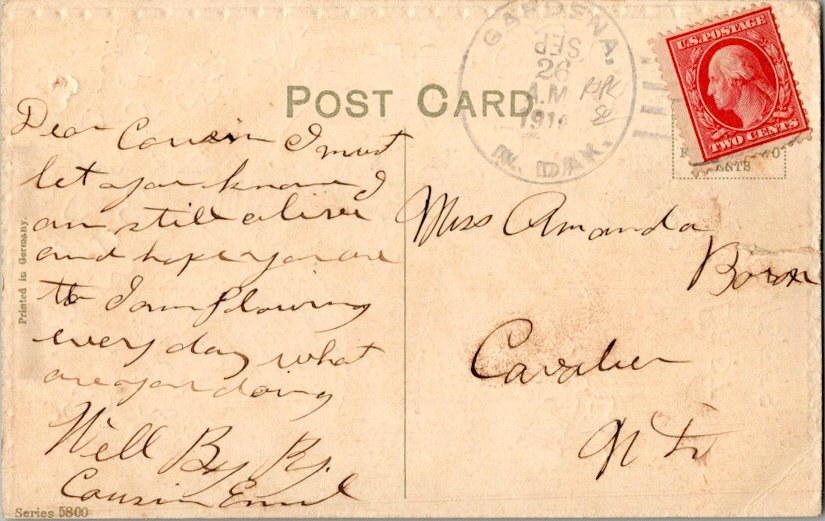 POST CARD
GARDENA,
SEP
26
A.M
191
N. DAK.
U.S. POSTAGE
TWO CENTS
Dear Cousin I must
let you know I
am still alive
and hope you are
to I am plowing
every day what
are you doing
Well By By.
Cousin Emil
Miss Amanda
Boron
Cavalier
N
Printed in Germany.
Series 5800